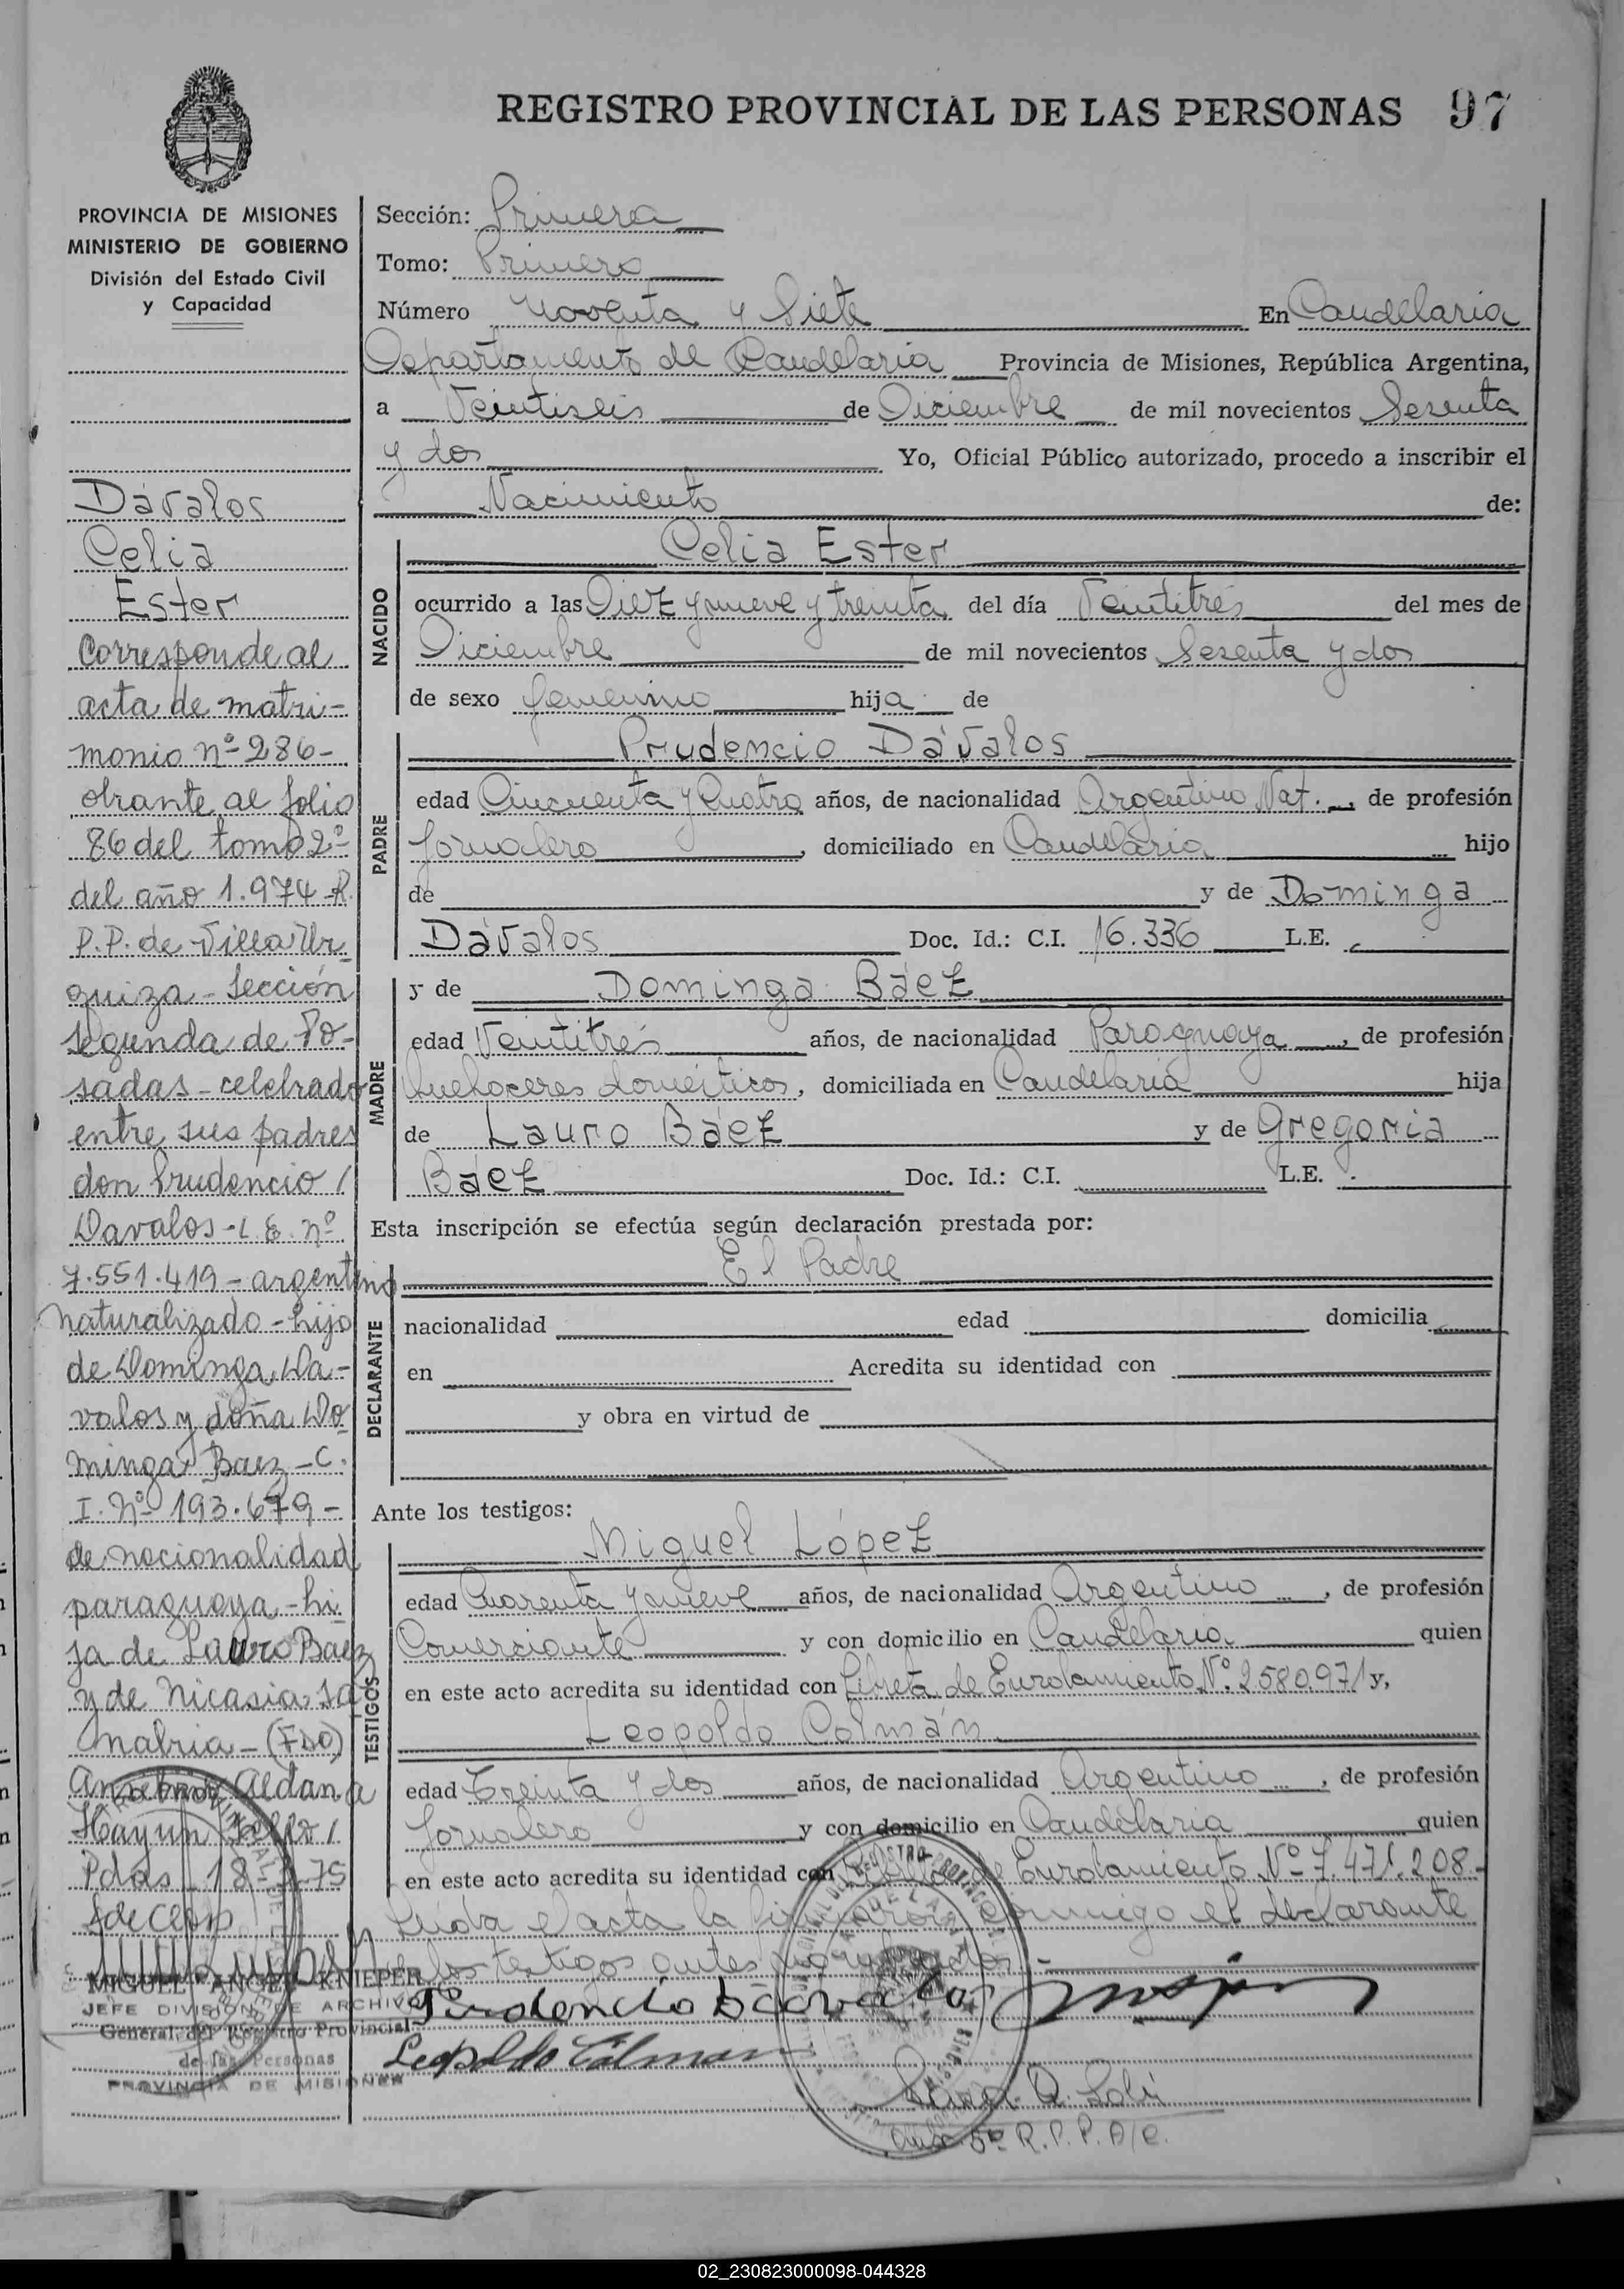 REGISTRO PROVINCIAL DE LAS PERSONAS 97
PROVINCIA DE MISIONES
MINISTERIO DE GOBIERNO
División del Estado Civil
y Capacidad
Dávalos
Celia
Ester
Corresponde al
acta de matri-
monio nº 286-
obrante al folio
86 del tomo 2º
del año 1.974-R.
P.P. de Villa Ur-
quiza - Sección
segunda de Po-
sadas - celebrado
entre sus padres
don Prudencio /
Davalos - L.E. nº
7.551.419 - argentino
naturalizado - hijo
de Dominga Da-
valos y doña Do-
minga Baez - C.
I. Nº 193.679 -
de nacionalidad
paraguaya - hi
ja de Lauro Baez
y de Nicasia Sa
nabria - (FDO)
Anselmo Aldana
Hayun
Pdas 18-
MIGUEL ANGEL KNIEPER
JEFE DIVISION DE ARCHIVO
General del Registro Provincial
de las Personas
PROVINCIA DE MISIONES
Sección: Primera
Tomo: Primero
Número Noventa y Siete En Candelaria
Departamento de Candelaria Provincia de Misiones, República Argentina,
a Veintiseis de Diciembre de mil novecientos Sesenta
y dos Yo, Oficial Público autorizado, procedo a inscribir el
Nacimiento de:
NACIDO
Celia Ester
ocurrido a las Diez y nueve y treinta del día Veintitrés del mes de
Diciembre de mil novecientos Sesenta y dos
de sexo femenino hija de
PADRE
Prudencio Dávalos
edad Cincuenta y Cuatro años, de nacionalidad Argentino Nat., de profesión
Jornalero, domiciliado en Candelaria hijo
de y de Dominga
Dávalos Doc. Id.: C.I. 16.336 L.E.
MADRE
y de Dominga Báez
edad Veintitrés años, de nacionalidad Paraguaya, de profesión
Quehaceres domésticos, domiciliada en Candelaria hija
de Lauro Báez y de Gregoria
Báez Doc. Id.: C.I. L.E.
Esta inscripción se efectúa según declaración prestada por:
DECLARANTE
El Padre
nacionalidad edad domicilia
en Acredita su identidad con
y obra en virtud de
Ante los testigos:
TESTIGOS
Miguel López
edad Cuarenta y nueve años, de nacionalidad Argentino, de profesión
Comerciante y con domicilio en Candelaria quien
en este acto acredita su identidad con Libreta de Enrolamiento Nº 2580.971 y,
Leopoldo Colmán
edad Treinta y dos años, de nacionalidad Argentino, de profesión
Jornalero y con domicilio en Candelaria quien
en este acto acredita su identidad con Libreta de Enrolamiento Nº 7.471.208.-
Leída el acta la firmaron conmigo el declarante
y los testigos antes nombrados.-
Leopoldo Colman
R.P.P. A/C.
02_230823000098-044328